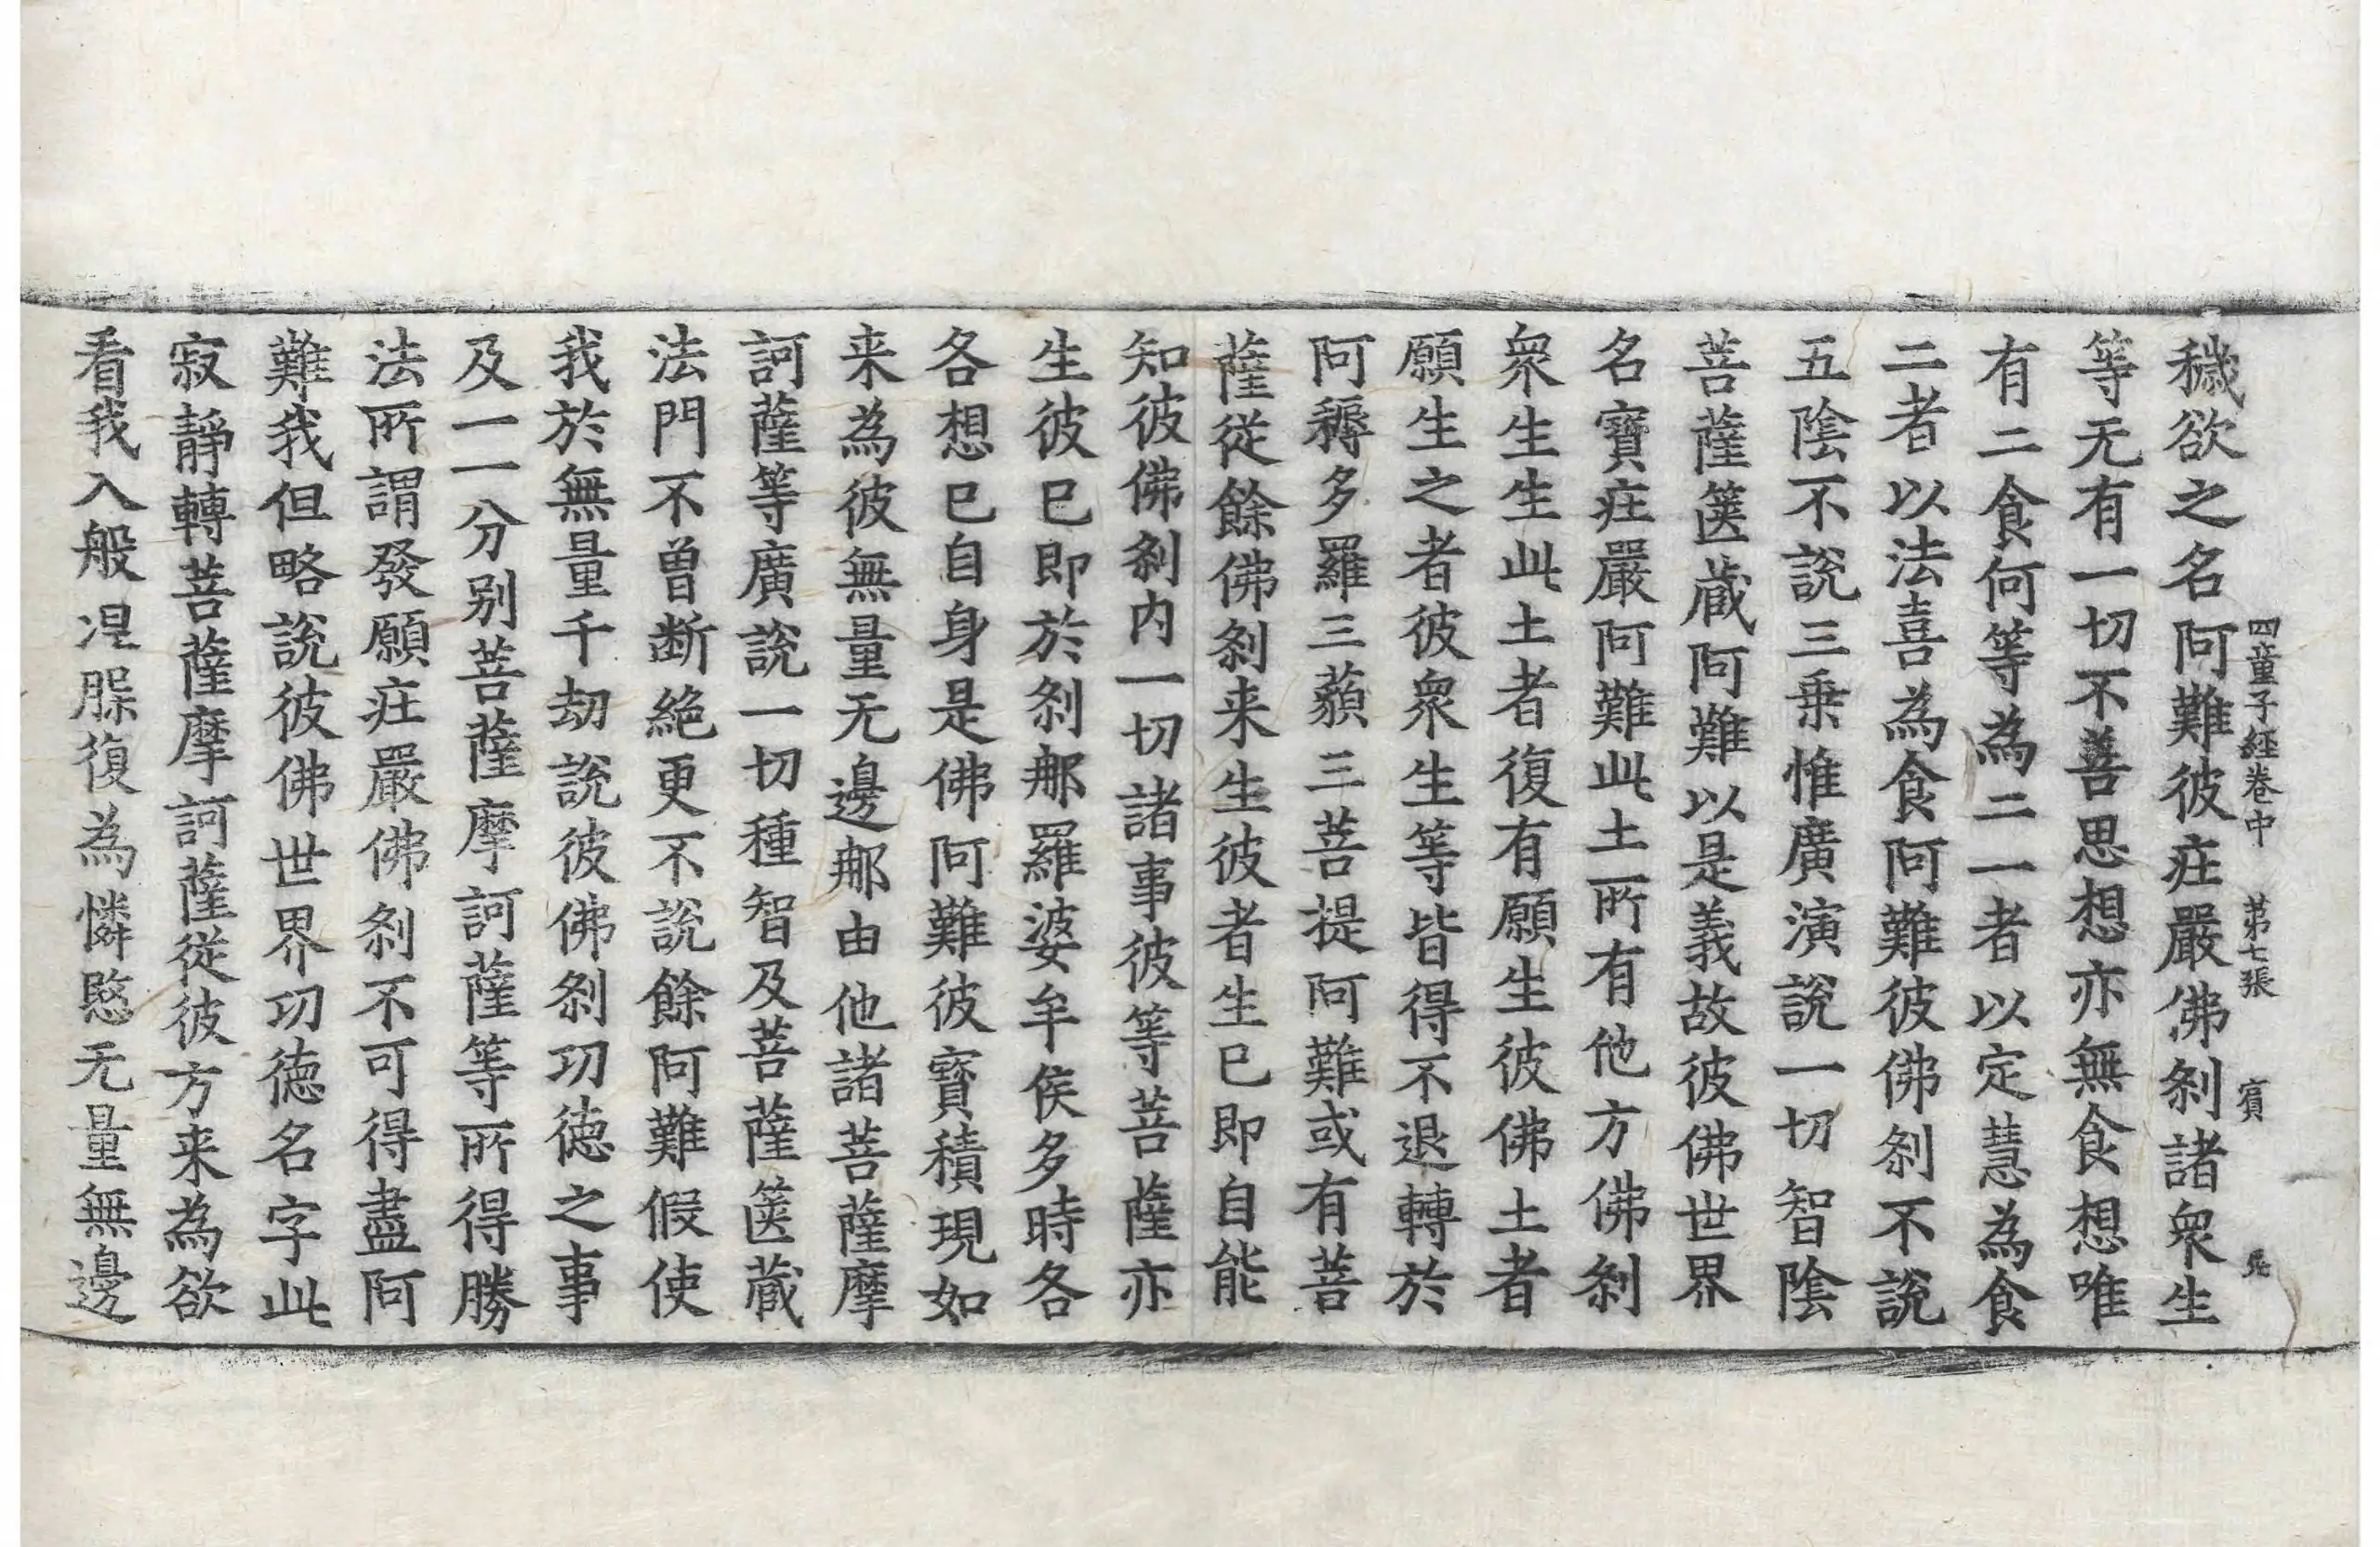 四童子經卷中 第七張 賓
穢欲之名阿難彼庄嚴佛刹諸衆生
等无有一切不善思想亦無食想唯
有二食何等為二一者以定慧為食
二者以法喜為食阿難彼佛刹不說
五陰不說三乗惟廣演說一切智陰
菩薩篋蔵阿難以是義故彼佛世界
名寶庄嚴阿難此土所有他方佛刹
衆生生此土者復有願生彼佛土者
願生之者彼衆生等皆得不退轉於
阿耨多羅三藐三菩提阿難或有菩
薩從餘佛刹来生彼者生已即自能
知彼佛刹内一切諸事彼等菩薩亦
生彼已即於刹那羅婆牟侯多時各
各想已自身是佛阿難彼寶積現如
来為彼無量无邊那由他諸菩薩摩
訶薩等廣說一切種智及菩薩篋蔵
法門不曽断絶更不說餘阿難假使
我於無量千劫說彼佛刹功徳之事
及一一分別菩薩摩訶薩等所得勝
法所謂發願庄嚴佛刹不可得盡阿
難我但略說彼佛世界功徳名字此
寂靜轉菩薩摩訶薩從彼方来為欲
看我入般涅槃復為憐愍无量無邊